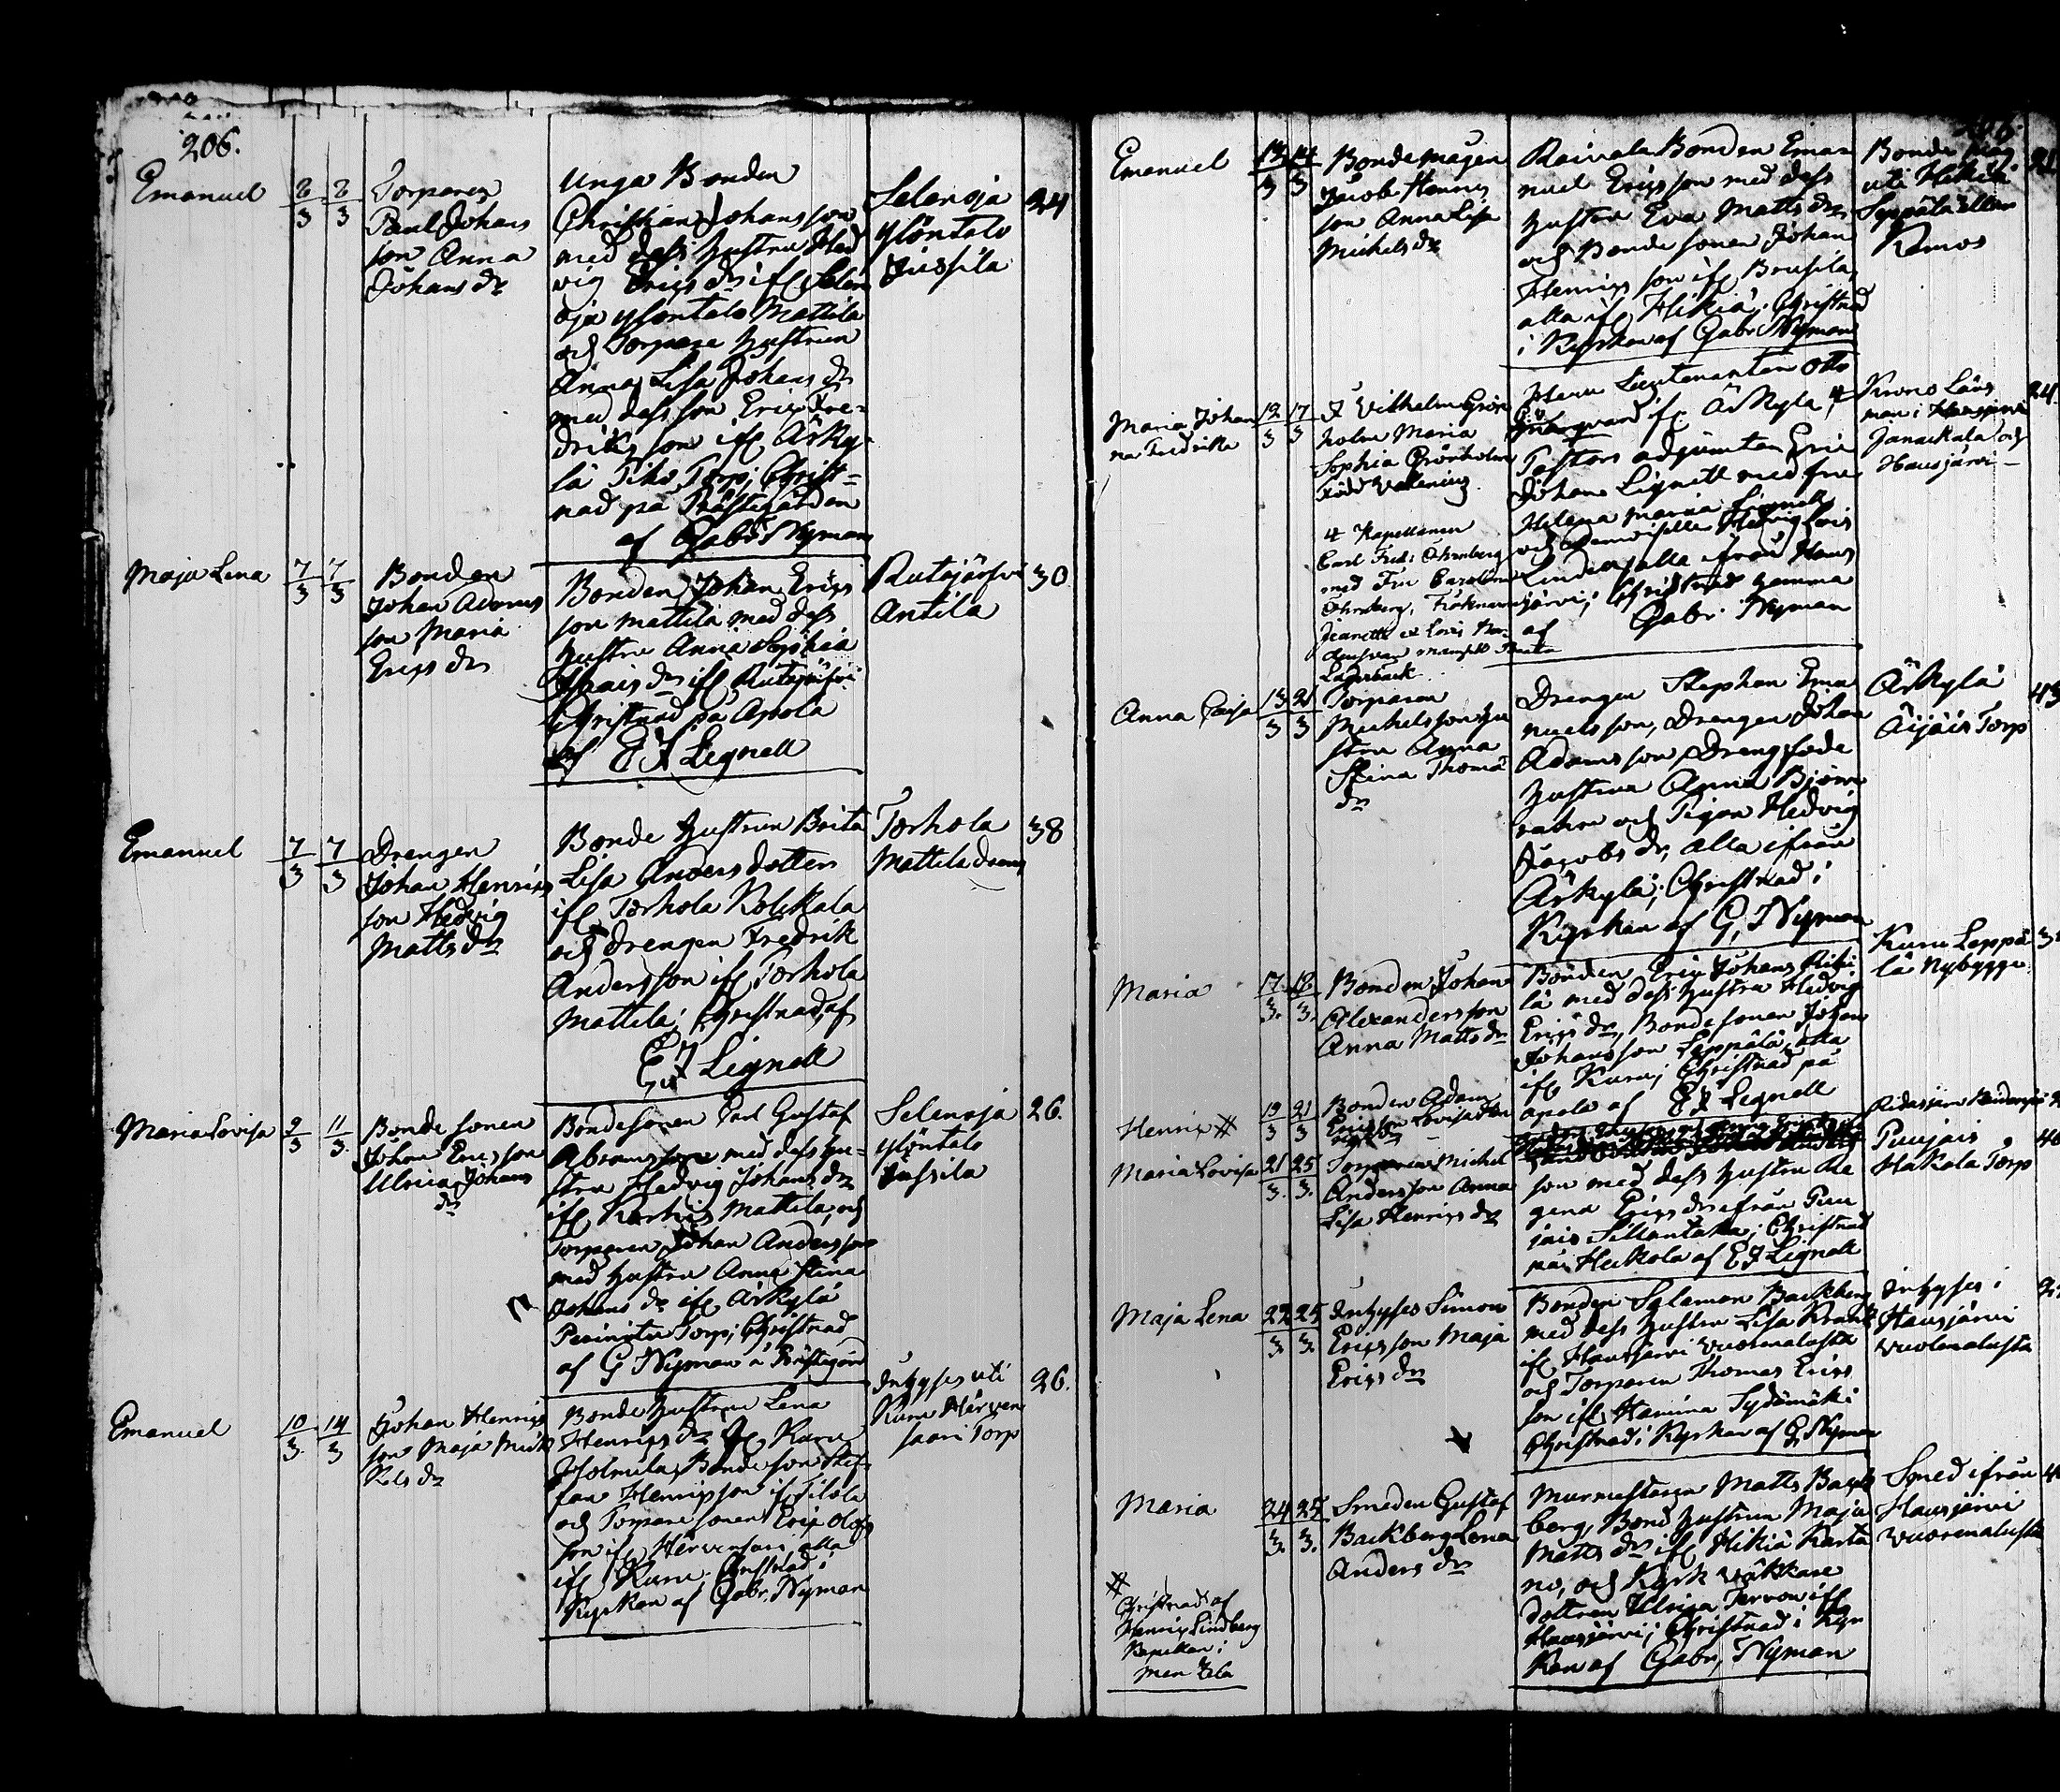 206.
Emanuel
8/3 8/3
Torparen
Paul Johans
son Anna
Johans dr
Unga Bonden
Christian Johansson
med dess hustru Hed
vig Erics dr ifr Selen
oja ylöntalo Mattila
och Torpare hustrun
Anna Lisa Johans dr
med dess son Eric Fre-
drics son ifr Årky-
lä Torp; Christ-
nad på Prästgården
af Gabr Nyman
Selenoja
ylöntalo
Jussila
24
Maja Lena
7/3 7/3
Bonden
Johan Adams
son Maria
Erics dr
Bonden Johan Erics
son Mattila med dess
hustru Anna Sophia
dr ifr Rutajärfvi
Christnad på Apola
af E J Lignell
Rutajärfvi
Antila
30
Emanuel
7/3 7/3
Drengen
Johan Henrics
son Hedvig
Matts dr
Bonde hustrun Brita
Lisa Anders dotter
ifr Torhola Kolkkala
och drengen Fredrik
Andersson ifr Torhola
Mattila; Christnad af
E J Lignell
Torhola
Mattila
38
Maria Lovisa
9/3 11/3
Bonde sonen
Johan Ericsson
Ulrica Johans
dr
Bondesonen Carl Gustaf
Abramsson med dess hu-
stru Hedvig Johans dr
ifr Karhis Mattila, och
Torparen Johan Andersson
med hustru Anna Stina
Johans dr ifr Årkylä
Torp; Christnad
af G Nyman å Prästgård
Selenoja
ylöntalo
Jussila
26.
Emanuel
10/3 14/3
Johan Henrics
son Maja Mick
els dr
Bonde hustrun Lena
Henrics dr ifr Kuru
Holmila, Bondeson Stef-
fan Henricsson ifr
och Torpare sonen Eric Olofs
son ifr Hervensari, alla
ifr Kuru. Christnad i
Kyrkan af Gabr. Nyman
Inhyses uti
Kuru Herven
saari Torp
26.
Emanuel
13/3 14/3
Bondemågen
Jacob Henrics
son Anna Lisa
Michels dr
Raivala Bonden Ema
nuel Ericsson med dess
hustru Eva Matts dr
och Bonde sonen Johan
Henricsson ifr Brusila,
alla ifr Hikiä; Christnad
i Kyrkan af Gabr Nyman
Bonde måg
uti Hikiä
Seppälä eller
Remos
21
Maria Johan
na Fredrika
12/3 17/3
J Vilhelm Grön
holm Maria
Sophia Grönholm
född
# Kapellanen
Carl Fredr Ohrnberg
med Fru Carolina
Ohrnberg, Fröknarna
Jeanette
Lagerbäck
Herr Lieutenanten Otto
ifr Årkyla, #
Pastors adjuncten Eric
Johan Lignell med fru
Helena Maria Lignell
och Demoiselle Hedvig Lovis
Linder, alla ifrån Haus
järvi; Christnad hemma
af Gabr. Nyman
Krono Läns
man i Hausjärvi
Janackala och
Hausjärvi
24.
Anna Caisa
13/3 21/3
Torparen
Michelsson hu
stru Anna
Stina Thoma
dr
Drengen Stephan Ema
nuelsson, Drengen Johan
Adamsson, Drengs
hustrun Anna Björn
och Pigan Hedvig
Jacobs dr, alla ifrån
Årkylä; Christnad i
Kyrkan af G, Nyman
Årkylä
Äijäis Torp
43
Maria
17/3. 18/3.
Bonden Johan
Alexandersson
Anna Matts dr
Bonden Eric Johans
lä med dess hustru Hedvig
Erics dr, Bonde sonen Johan
Johansson Leppälä, alla
ifr Kuru; Christnad på
apola af E J Lignell
Kuru Leppä
lä Nybygge
Henric #
19/3 21/3
Bonden Adam
Ericsson Lovisa
Maria Lovisa
21/3. 25/3.
Torparen Michel
Andersson Anna
Lisa Henrics dr
son med dess hustru Re
gina Erics dr ifrån Puu
jais Sillantaka; Christnad
på Heikola af E J Lignell
Puujais
Hakola Torp
Maja Lena
22/3. 25/3.
Inhyses Simon
Ericsson Maja
Erics dr
Bonden Salomon Backberg
med dess hustru Lisa
ifr Hausjärvi Vuolenalusta
och Torparen Thomas Erics
son ifr Hamina Sydänmäki
Christnad i Kyrkan af G, Nyman
Inhyses i
Hausjärvi
Vuolenalusta
Maria
24/3. 25/3.
Smeden Gustaf
Backberg Lena
Anders dr
Murmästaren Matts Back
berg, Bond hustrun Maja
Matts dr ifr Hikiä Karta
no, och Kyrk väkkare
dottren Ulrica Tervon ifr
Hausjärvi; Christnad i Kyr
kan af Gabr, Nyman
Smed ifrån
Hausjärvi
Vuorenalusta
#
Christnad af
Henric Lindberg
Kapellan i